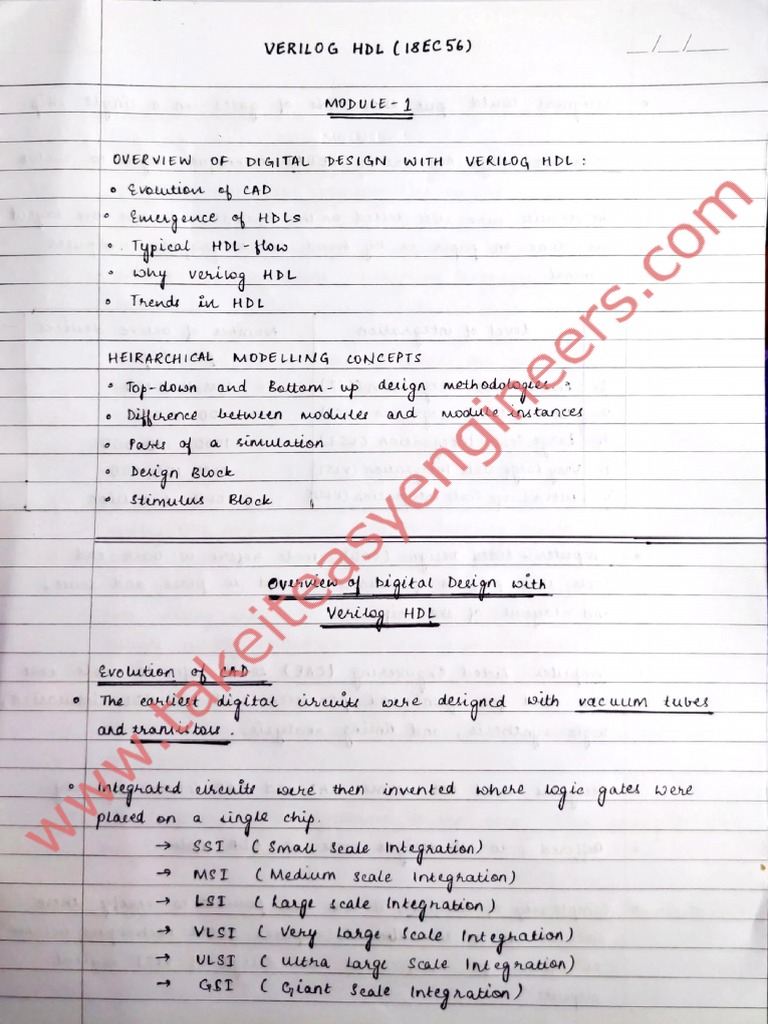 VERILOG HDL (18EC56)
__/__/__
MODULE-1
OVERVIEW OF DIGITAL DESIGN WITH VERILOG HDL :
• Evolution of CAD
• Emergence of HDLs
• Typical HDL-flow
• Why Verilog HDL
• Trends in HDL
HEIRARCHICAL MODELLING CONCEPTS
• Top-down and Bottom-up design methodologies.
• Difference between modules and module instances
• Parts of a simulation
• Design Block
• Stimulus Block
Overview of Digital Design with
Verilog HDL
Evolution of CAD
• The earliest digital circuits were designed with vacuum tubes
and transistors.
• Integrated circuits were then invented where logic gates were
placed on a single chip.
→ SSI (Small Scale Integration)
→ MSI (Medium Scale Integration)
→ LSI (Large Scale Integration)
→ VLSI (Very Large Scale Integration)
→ ULSI (Ultra Large Scale Integration)
→ GSI (Giant Scale Integration)
www.takeiteasyengineers.com